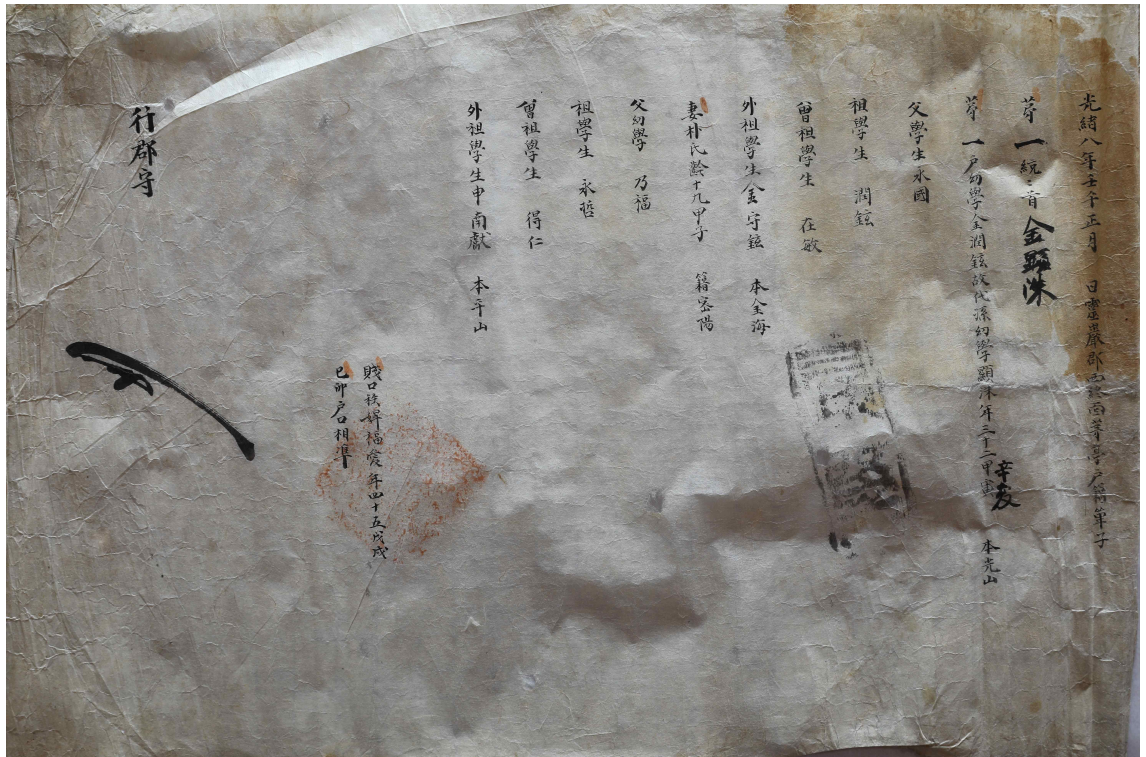 光緖八年壬午正月　日靈巖郡西終面孝亭戶籍單子
苐一統統首金顯洙
苐一戶幼學金潤鉉故代孫幼學顯洙年三十二甲 辛亥　本光山
父學生永國
祖學生　潤鉉
曾祖學生　在敏
外祖學生金守鉉　本金海
妻朴氏齡十九甲子　籍密陽
父幼學　乃福
祖學生　永哲
曾祖學生　得仁
外祖學生申南獻　本平山
賤口秩婢福愛年四十五戊戌
己卯戶口相準
行郡守